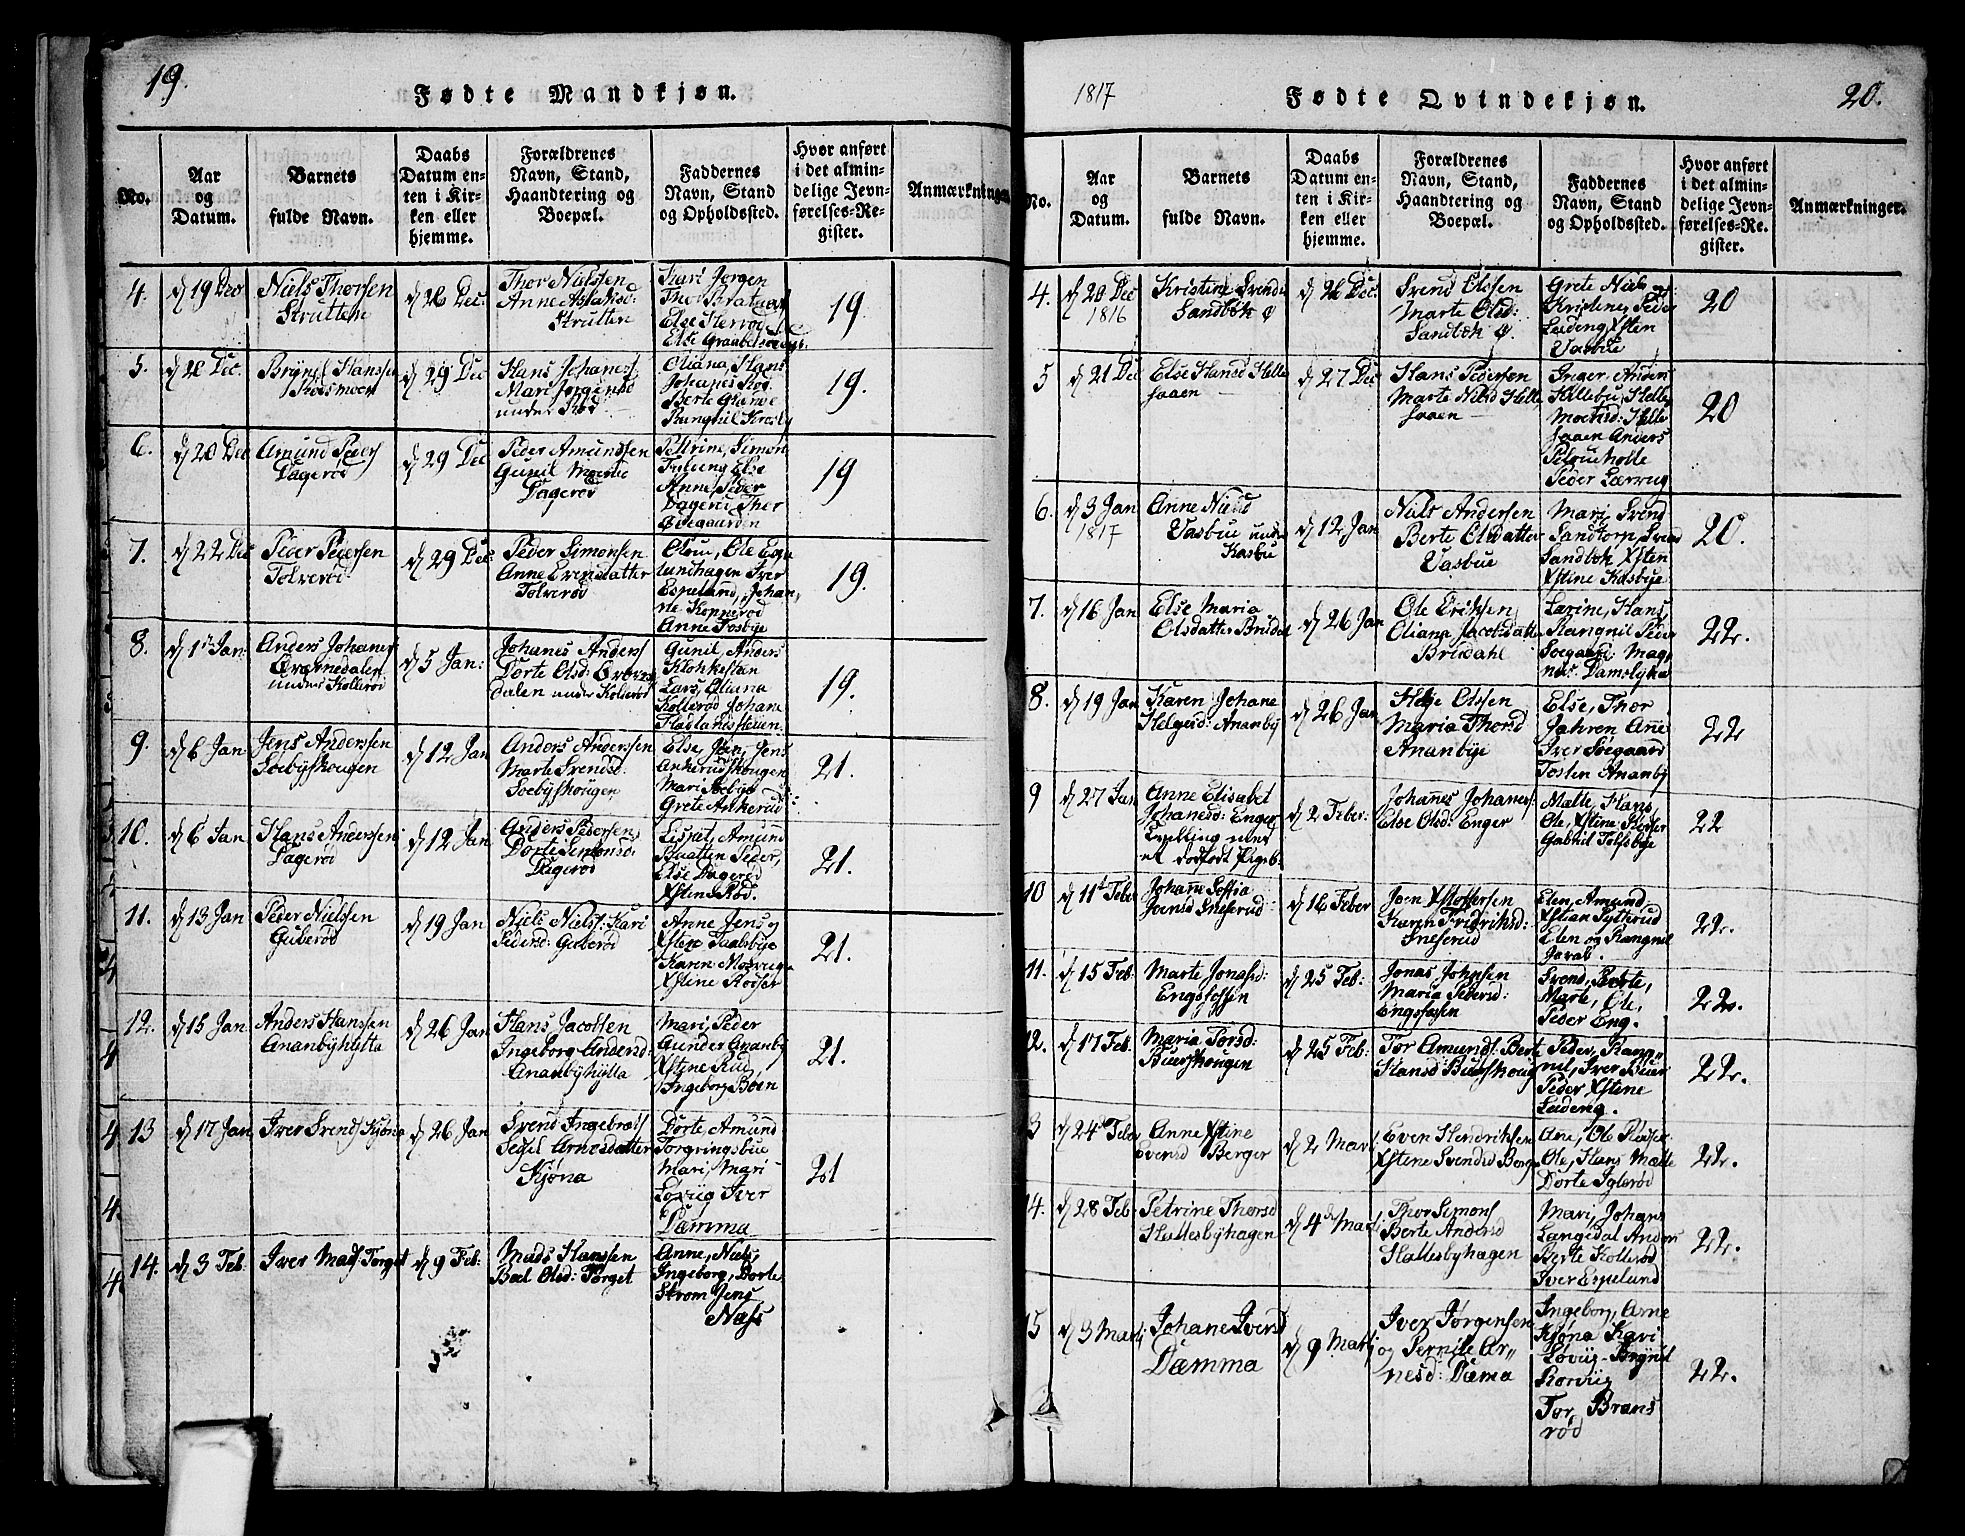 19.
Fødte Mandkjøn.
No.
Aar
og
Datum.
Barnets
fulde Navn.
Daabs
Datum en-
ten i Kir-
ken eller
hjemme.
Forældrenes
Navn, Stand,
Haandtering og
Boepæl.
Faddernes
Navn, Stand
og Opholdssted.
Hvor anført
i det almin-
delige Jevn-
førelses-Re-
gister.
Anmærkninger
4.
d 19 Dec
Niels Thorsen
Strutten
d 26 Dec.
Thor Nielssen
Anne Aslaksd:
Strutten
Kari Jørgen
Thor
Else
Else
19
5.
Brynil Hanssen
d 29 Dec
Hans Johanes
Mari Jørgensd
under Rød
Oliana, Hans
Johanes Rød
Berte
Rangnil
19.
6.
d 20 Dec
Amund Peders
Dagerød
d 29 Dec
Peder Amundssen
Gunil
Dagerød
Pettrine, Simon
Else
Anne, Peder
Dagerød Thor
19
7.
d 22 Dec
Peder Pedersen
Tolverød
d 29 Dec
Peder Simonsen
Anne Evensdatter
Tolverød
Ole
Iver
Espelund, Johan
ne Kopperød
Anne Fosbye
19.
8.
d 1st Jan
Anders Johanes
under Kollerød
d 5 Jan:
Johanes Anders
Dorte Olsd:
dalen under Kollerød
Gunil, Anders
Klokkestan
Lars, Oliana
Kollerød Johane
19.
9.
d 6 Jan
Jens Anderssen
Soebyskougen
d 12 Jan
Anders Anderssen
Marte Svendsd:
Soebyskougen
Else, Jan, Jens
Ankerudskougen
Mari Soebye
Grete Ankerud
21.
10.
d 6 Jan
Hans Anderssen
Dagerød
d 12 Jan
Anders Pedersen
Dorte Simonsd:
Dagerød
Lisbet, Amund
Braatten Peder,
Else Dagerød
Xstine Rød.
21.
11.
d 13 Jan
Peder Nielssen
Guberød
d 19 Jan
Niels Niels: Kari
Pedersd: Guberød
Anne Jens og
Xsten Taalsbye
Karen
Xstene
21.
12.
d 15 Jan
Anders Hanssen
Ananbyhytta
d 26 Jan
Hans Jacobsen
Ingeborg Andersd:
Ananbyhytta
Mari, Peder
Gunder Ananby
Xstine Rud,
Ingeborg Boen
21.
13
d 17 Jan
Iver Svends Kjøna
d 26 Jan
Svend Ingebrets
Sedsil Arnesdatter
Kjøna
Dorte Amund
Torgringsbue
Mari, Mari
Løvug Iver
Dæmma
21
14.
d 3 Feb.
Iver Mads: Torget
d 9 Feb:
Mads Hanssen
Boel Olsd: Torget
Anne, Niels,
Ingeborg, Dorte
Strøm Jens
Næss
1817
Fødte Qvindekjøn.
20.
No.
Aar
og
Datum.
Barnets
fulde Navn.
Daabs
Datum en-
ten i Kir-
ken eller
hjemme.
Forældrenes
Navn, Stand,
Haandtering og
Boepæl.
Faddernes
Navn, Stand
og Opholdssted.
Hvor anført
i det almin-
delige Jevn-
førelses-Re-
gister.
Anmærkninger.
4.
d 20 Dec
1816
Kristine Svends
Sandbøk Ø
d 26 Dec.
Svend Olssen
Marte Olsd:
Sandbøk Ø.
Grete Niels og
Kristine, Peder
Leideng Xsten
Vasbue
20
5
d 21 Dec
Else Hansd Helle
saaen
d 27 Dec
Hans Pedersen
Marte Nilsd Helle
saaen
Inger, Anders
Killebu, Helle
saaen Anders
Peder Lærvug
20
6.
d 3 Jan
1817
Anne Nielsd
Vasbue under
Kasbu
d 12 Jan
Niels Andersen
Berte Olsdatter
Vasbue
Mari, Svend
Sandtorp, Svend
Sandbøk Xsten
Xstine Kasbye
20.
7.
d 16 Jan
Else Maria
Olsdatter Brudal
d 26 Jan
Ole Eriksen
Oliana Jacobsdatter
Brudahl
Larine, Hans
Rangnil Peder
Soegaard: Mag,
nus: Damslyka
22.
8.
d 19 Jan
Karen Johane
Helgesd: Ananby
d 26 Jan
Helge Olssen
Maria Thorsd
Ananbye
Else, Thor
Jahren Ane
Iver Soegaard
Tosten Ananby
22
9
d 27 Jan
Anne Elisabet
Johanesd: Enger
Tvelling med
et dødfødt Pigeb.
d 2 Feber:
Johanes Johanes
Else Olsd: Enger
Mette, Hans,
Ole, Xstine
Gabriel Tolfsbye
22
10
d 11te Feber
Johane Soffia
Joensd Sneserud
d 16 Feber
Joen Xstoffersen
Karen Fridriksd:
Sneserud
Elen, Amund,
Xstian Sytterud
Elen og Rangnil
22.
11.
d 15 Feb.
Marte Jonasd:
d 25 Feb:
Jonas Johnsen
Maria Pedersd:
Svend, Berte,
Marte, Ole,
Peder Eng.
22.
12.
d 17 Feb.
Maria Torsd:
Buerskougen
d 25 Feb:
Tor Amunds: Berte
Hansd Buerskoug
Peder, Ran-
nil, Iver Buer
Peder Xstine
Leideng.
22.
13
d 24de Feber
Anne Xstine
Evensd Berger
d 2 Marti
Even Hendriksen
Xstene Svendsd Berger
Ane, Ole
Ole, Hans Mette
Dorte Iglerød
22.
14.
d 28 Feb.
Petrine Thorsd
Hallesbyhagen
d 4de Marti
Thor Simons
Berte Andersd
Hallesbyhagen
Mari, Johans
Langedal Anders
Berte Kollerød
Iver Espelund
22.
15
d 3 Marti
Johane Iversd
Dæmma
d 9 Marti
Iver Jørgensen
og Pernille Ar-
nesd: Dæma
Ingeborg, Arne
Kjøna Kari
Løvug
Rørvug
Tor Brans
rød
22.